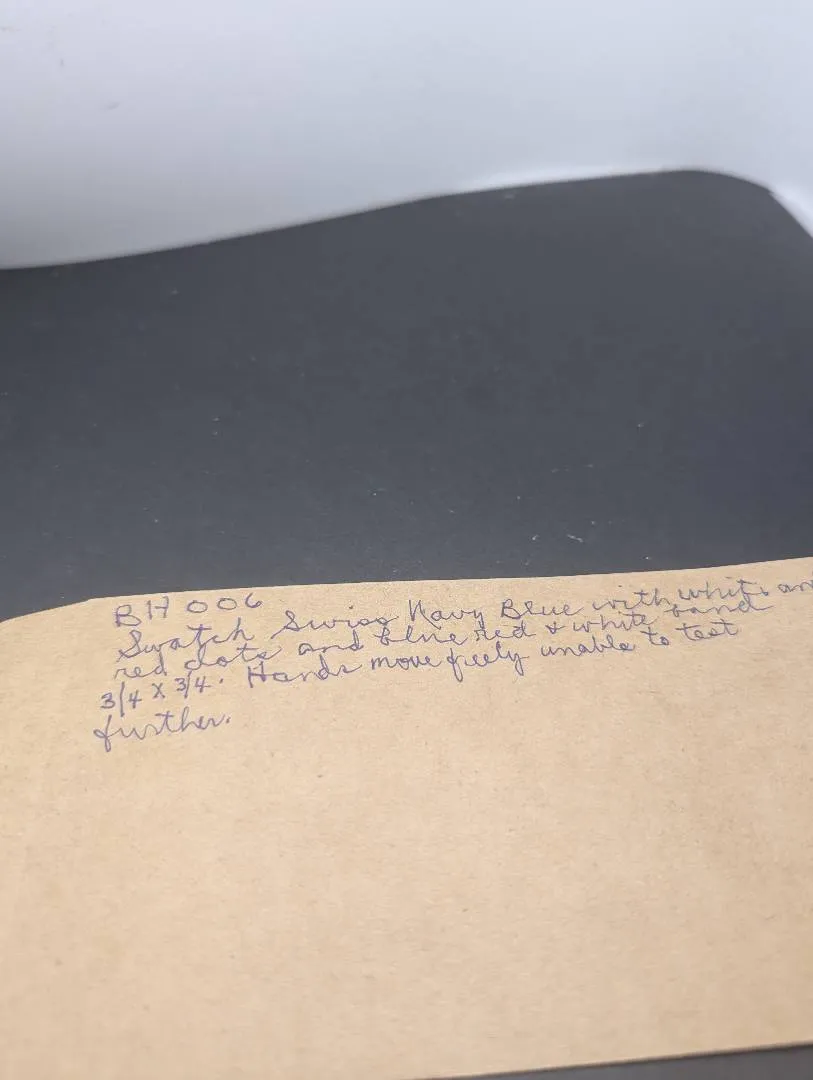 BH 006
Swatch Swiss Navy Blue with white an
red dots and blue red & white band
3/4 X 3/4. Hands move freely unable to test
further.